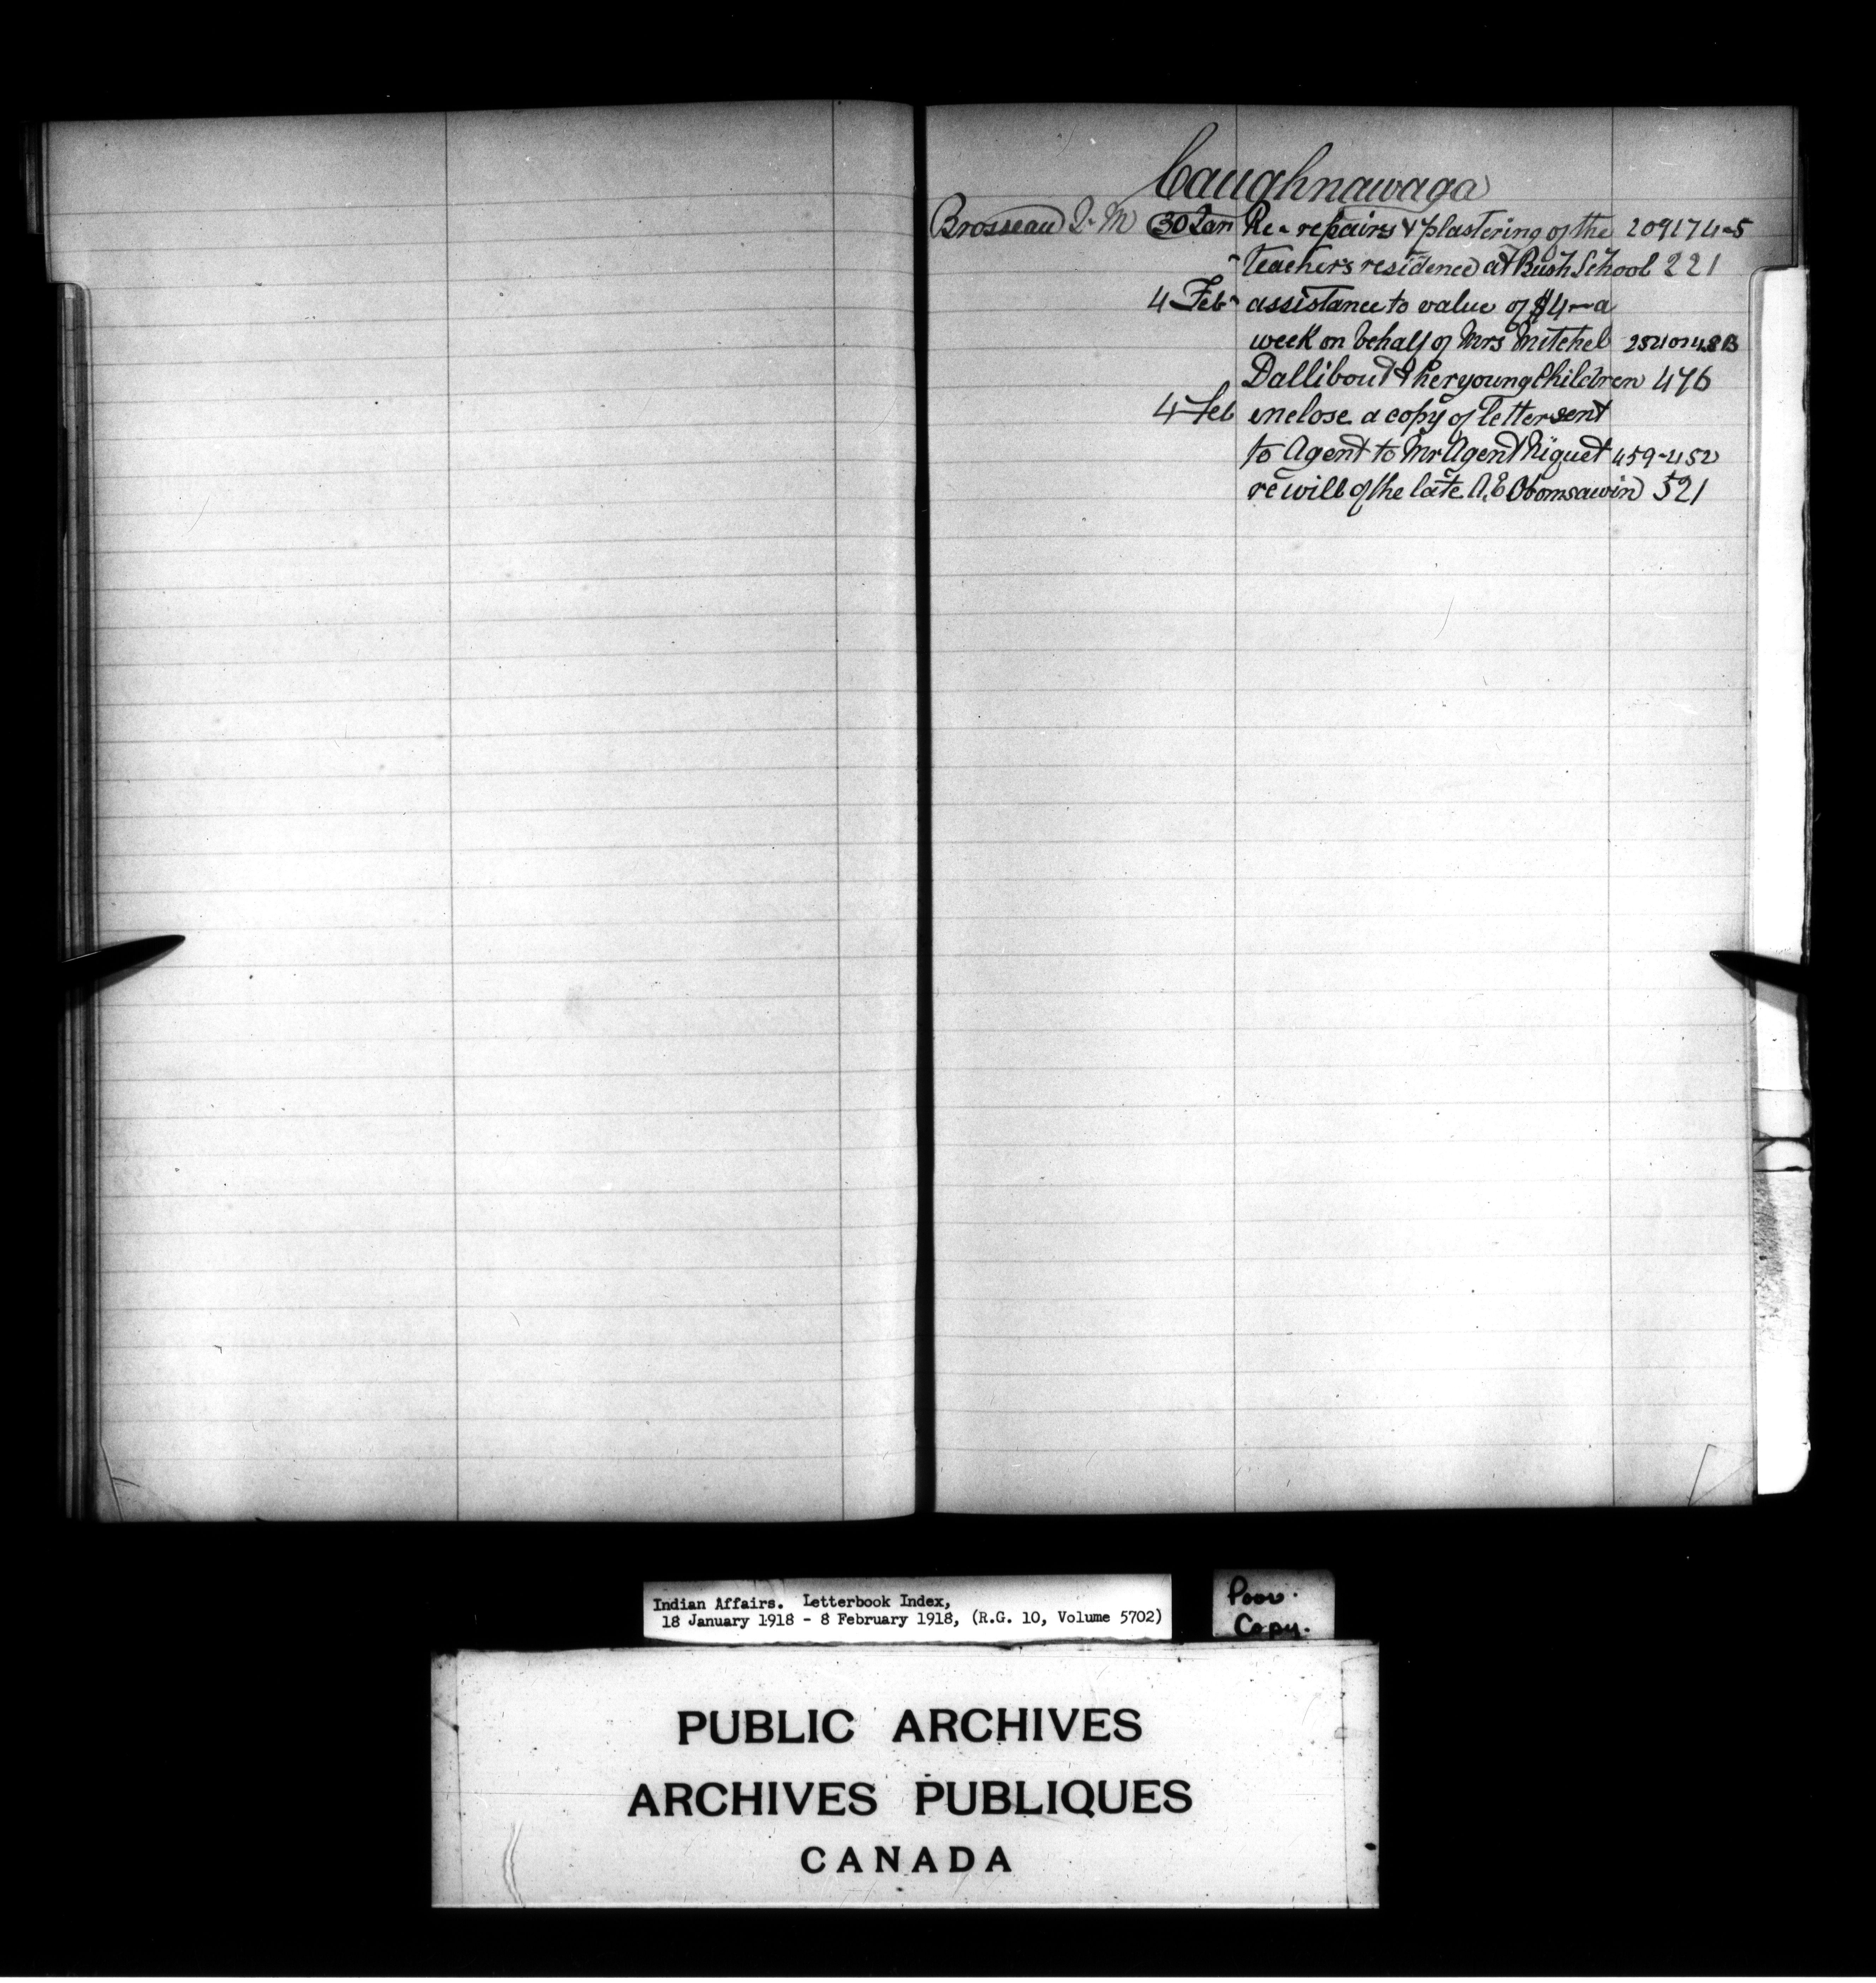 Caughnawaga
Brosseau J. M 30 Jan Re - repairs & plastering of the 209174-5
- Teachers residence at Bush School 221
4 Feb - assistance to value of $4 - a
week on behalf of Mrs Mitchel 254048B
Dallibout & her young Children 476
4 Feb enclose a copy of letter sent
to Agent to Mr Agent Niquet 459-452
re will of the late A, E Obomsawin 521
Indian Affairs. Letterbook Index,
18 January 1918 - 8 February 1918, (R.G. 10, Volume 5702)
Poor.
Copy.
PUBLIC ARCHIVES
ARCHIVES PUBLIQUES
CANADA